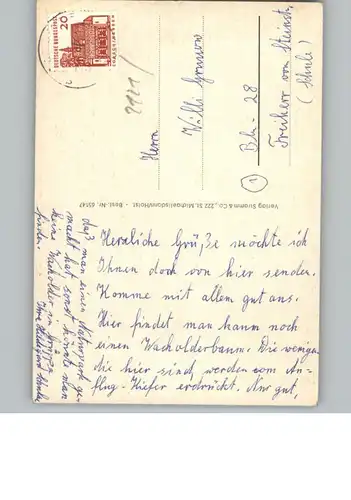 DEUTSCHE BUNDESPOST
20
Herrn
Willi
Bln - 28
Freiherr vom Steinstr.
(Schule)
1
Verlag Stramm & Co., 222 St. Michaelisdonn/Holst. - Best.-Nr.
Herzliche Grüße möchte ich
Ihnen doch von hier senden.
Komme mit allem gut aus.
Hier findet man kaum noch
einen Wacholderbaum. Die wenigen
die hier sind, werden vom An-
flug-Kiefer erdrückt. Nur gut,
daß man einen Naturpark ge-
macht hat, sonst könnte man
keine Wacholder im
finden. Ihre Hildegard